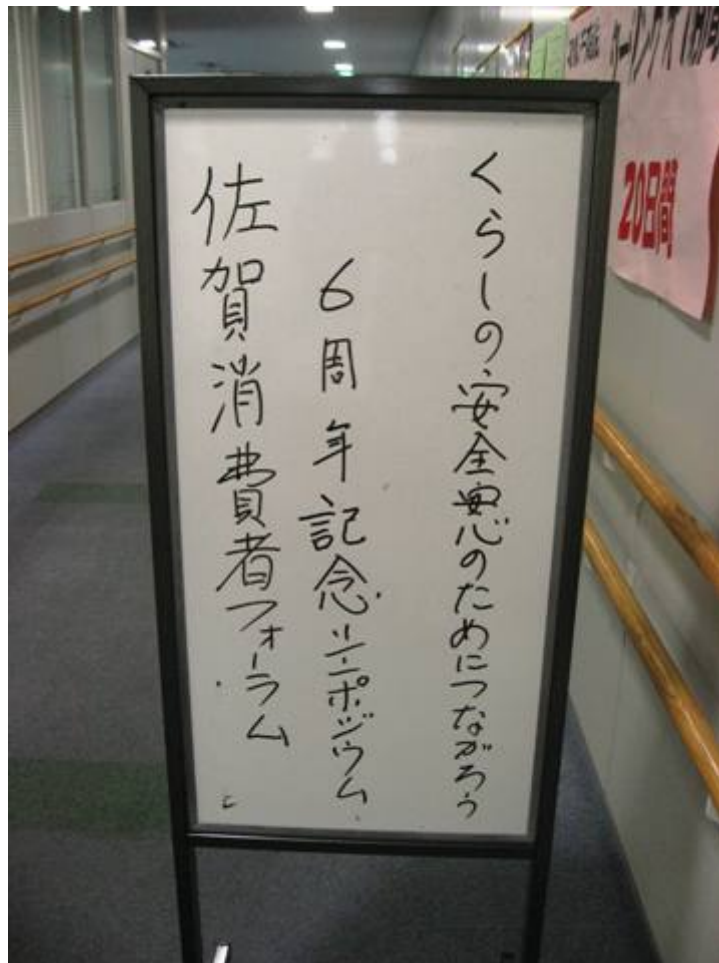 くらしの安全安心のためにつながろう
6周年記念シンポジウム
佐賀消費者フォーラム
20日間